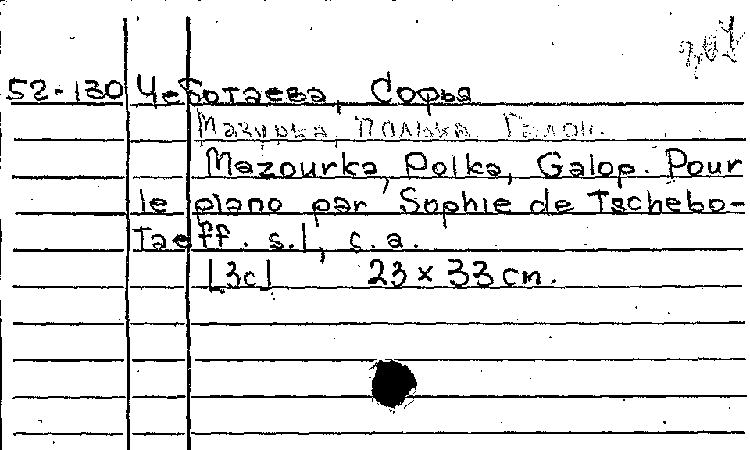 52-130 Чеботаева, Софья
Мазурка, Полька, Галоп.
Mazourka, Polka, Galop. Pour
le piano par Sophie de Tschebo-
taeff. s.l, s.a.
[3c] 23 x 33 cm.